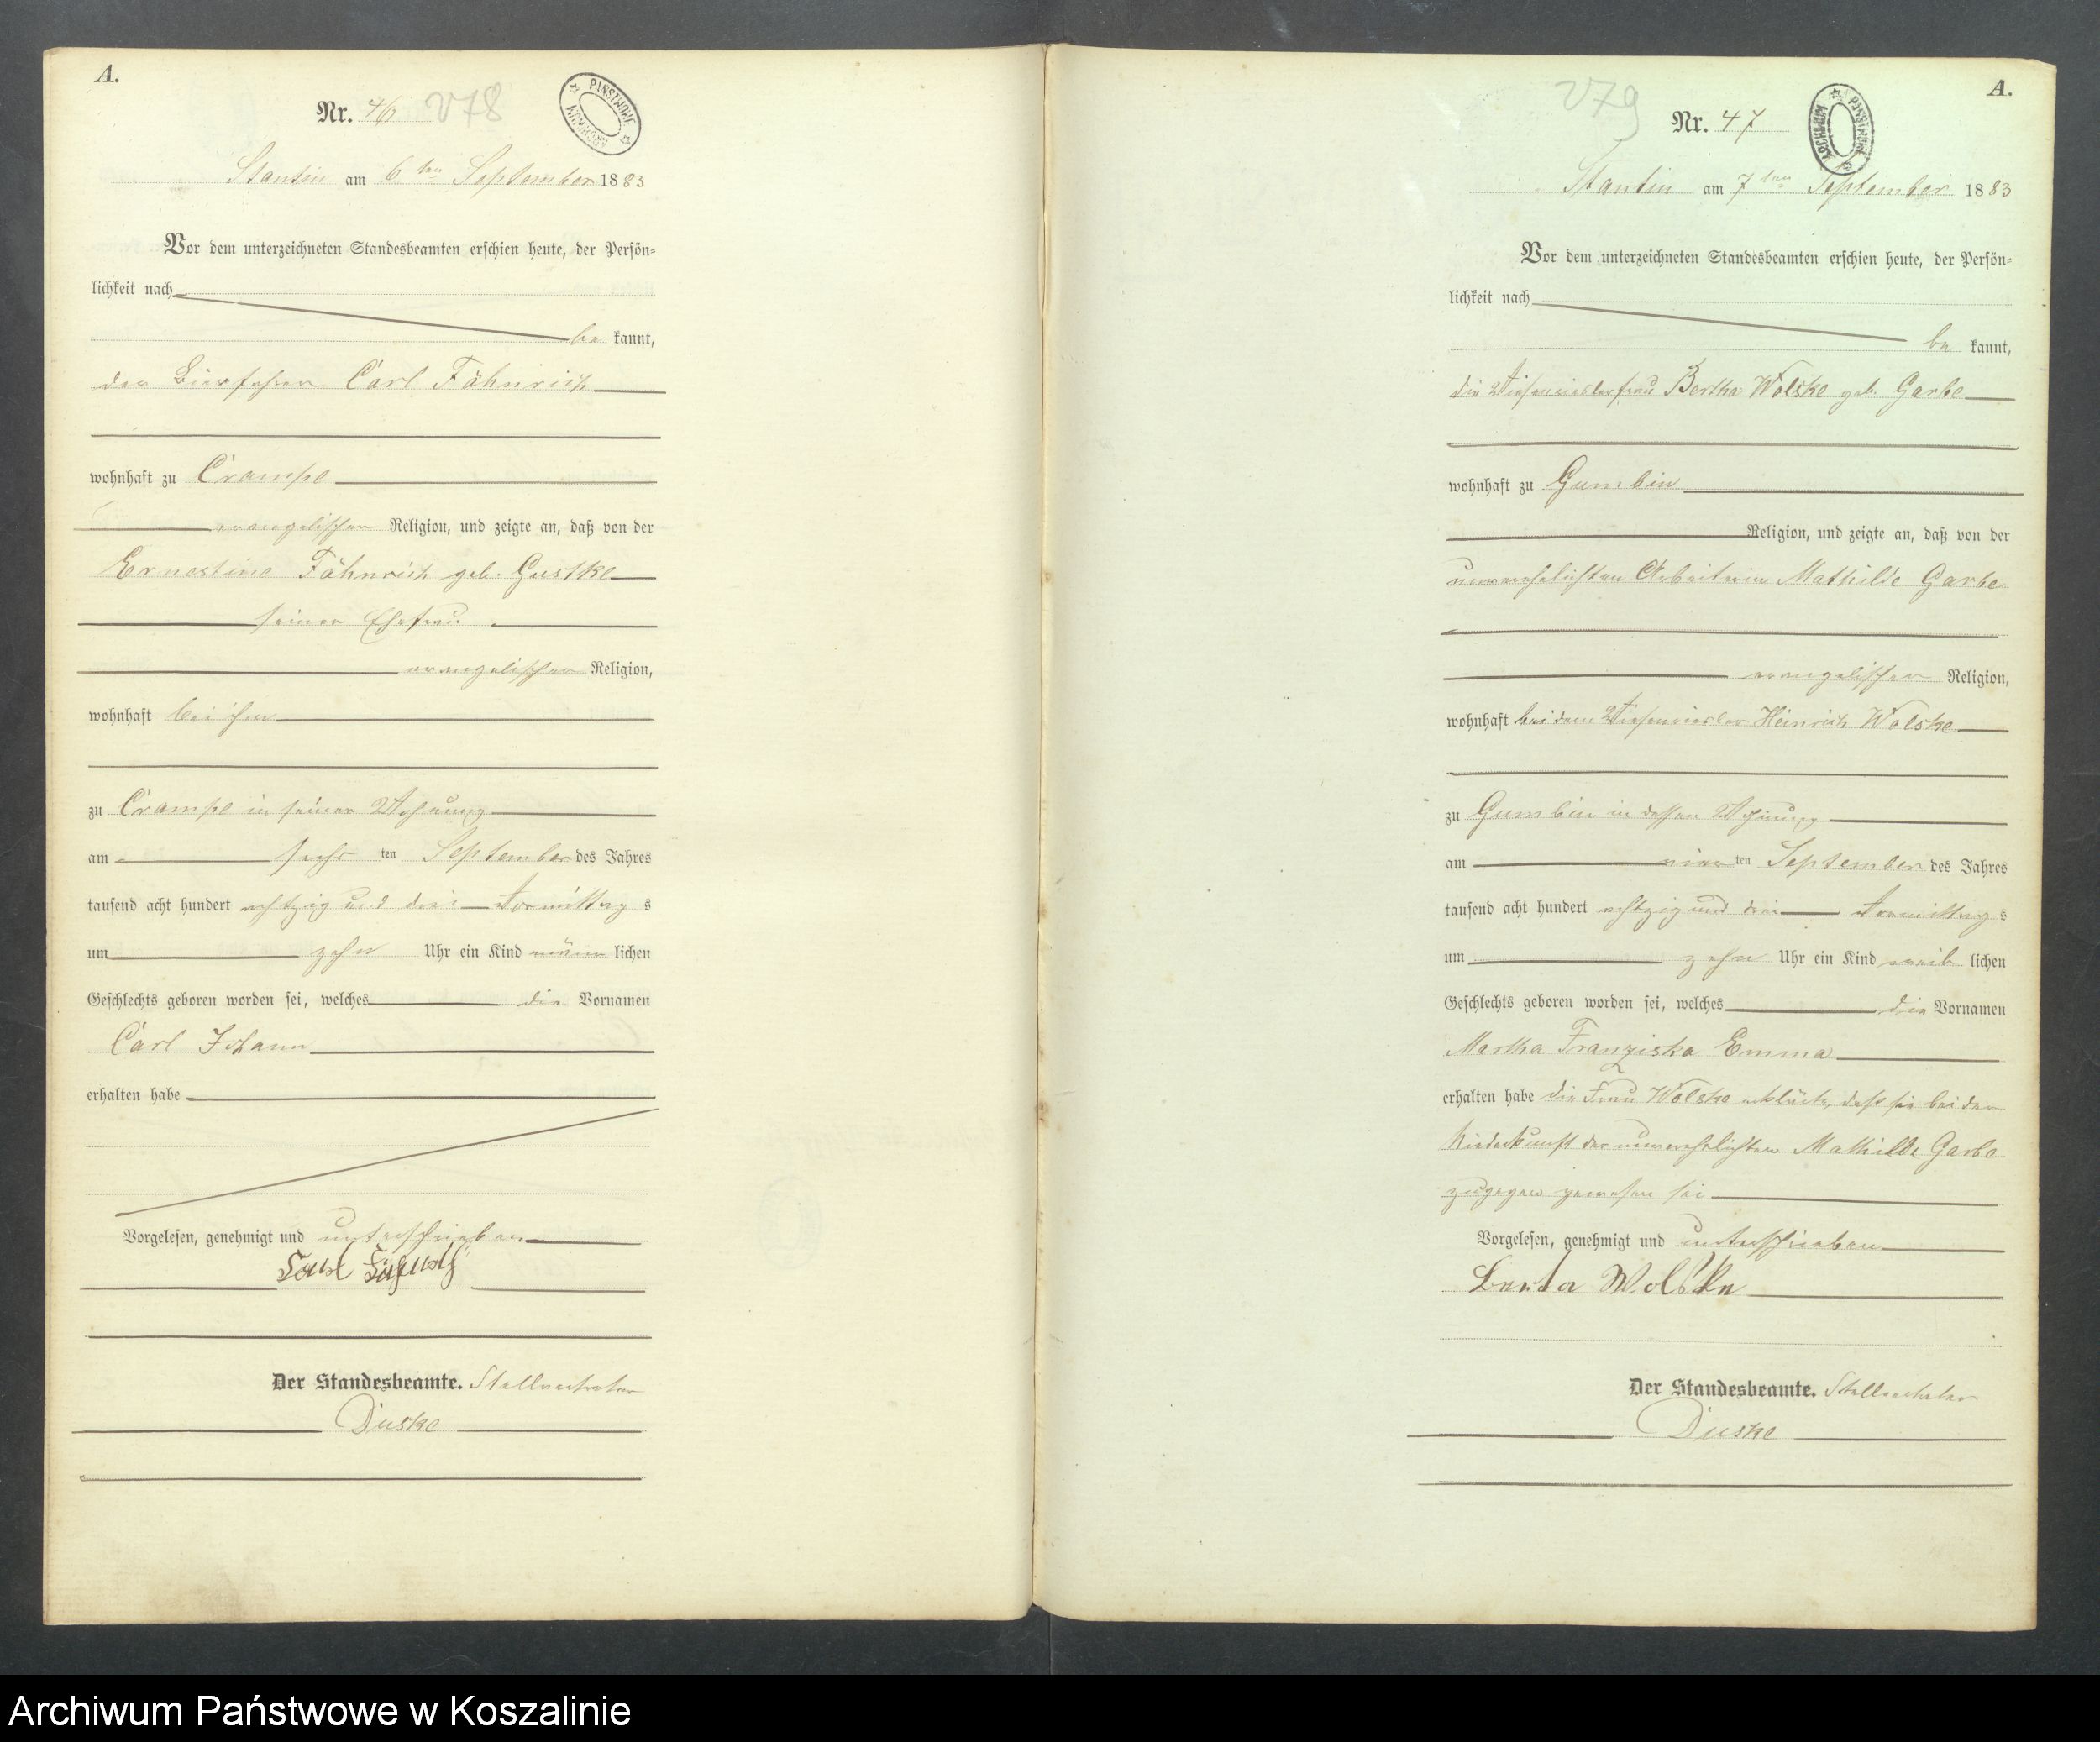 A.
Nr. 46 278
PAŃSTWOWE ARCHIWUM
Stantin am 6ten September 1883
Vor dem unterzeichneten Standesbeamten erschien heute, der Persön-
lichkeit nach
be kannt,
der Carl Fähnrich
wohnhaft zu Crampe
evangelischer Religion, und zeigte an, daß von der
Ernestine Fähnrich geb. Gustke
seiner Ehefrau
evangelischer Religion,
wohnhaft bei ihm
zu Crampe in seiner Wohnung
am sechs ten September des Jahres
tausend acht hundert achtzig und drei Vormittag s
um zehn Uhr ein Kind männ lichen
Geschlechts geboren worden sei, welches die Vornamen
Carl Johann
erhalten habe
Vorgelesen, genehmigt und unterschrieben
Der Standesbeamte. Stellvertreter
Duske
A.
279
Nr. 47
PAŃSTWOWE ARCHIWUM
Stantin am 7ten September 1883
Vor dem unterzeichneten Standesbeamten erschien heute, der Persön-
lichkeit nach
be kannt,
die Bertha Wolske geb. Garbe
wohnhaft zu Gumbin
Religion, und zeigte an, daß von der
unverehelichten Arbeiterin Mathilde Garbe
evangelischer Religion,
wohnhaft bei dem Heinrich Wolske
zu Gumbin in dessen Wohnung
am vier ten September des Jahres
tausend acht hundert achtzig und drei Vormittag s
um zehn Uhr ein Kind weib lichen
Geschlechts geboren worden sei, welches die Vornamen
Martha Franziska Emma
erhalten habe die Frau Wolske erklärte, daß sie bei der
Niederkunft der unverehelichten Mathilde Garbe
zugegen gewesen sei
Vorgelesen, genehmigt und unterschrieben
Berta Wolske
Der Standesbeamte. Stellvertreter
Duske
Archiwum Państwowe w Koszalinie